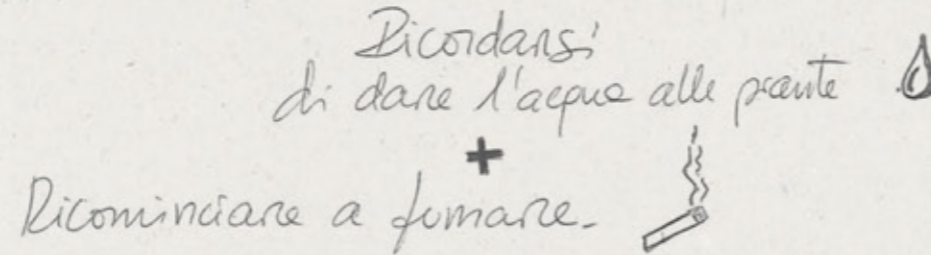 Ricordarsi
di dare l'acqua alle piante
+
Ricominciare a fumare.